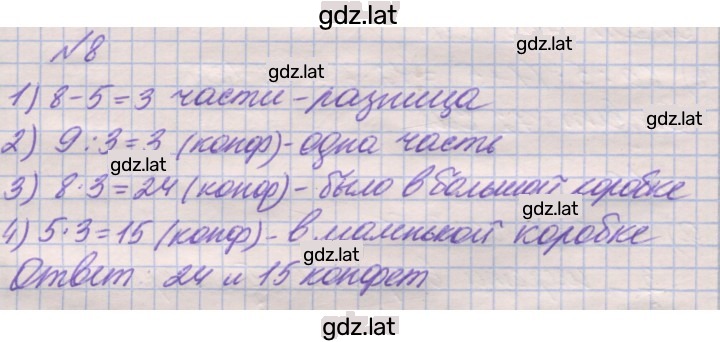 gdz.lat
№8
gdz.lat
1) 8-5=3 части - разница
gdz.lat
2) 9:3=3 (конф) - одна часть
gdz.lat
3) 8·3=24 (конф) - было в большой коробке
gdz.lat
4) 5·3=15 (конф) - в маленькой коробке
gdz.lat
Ответ 24 и 15 конфет
gdz.lat